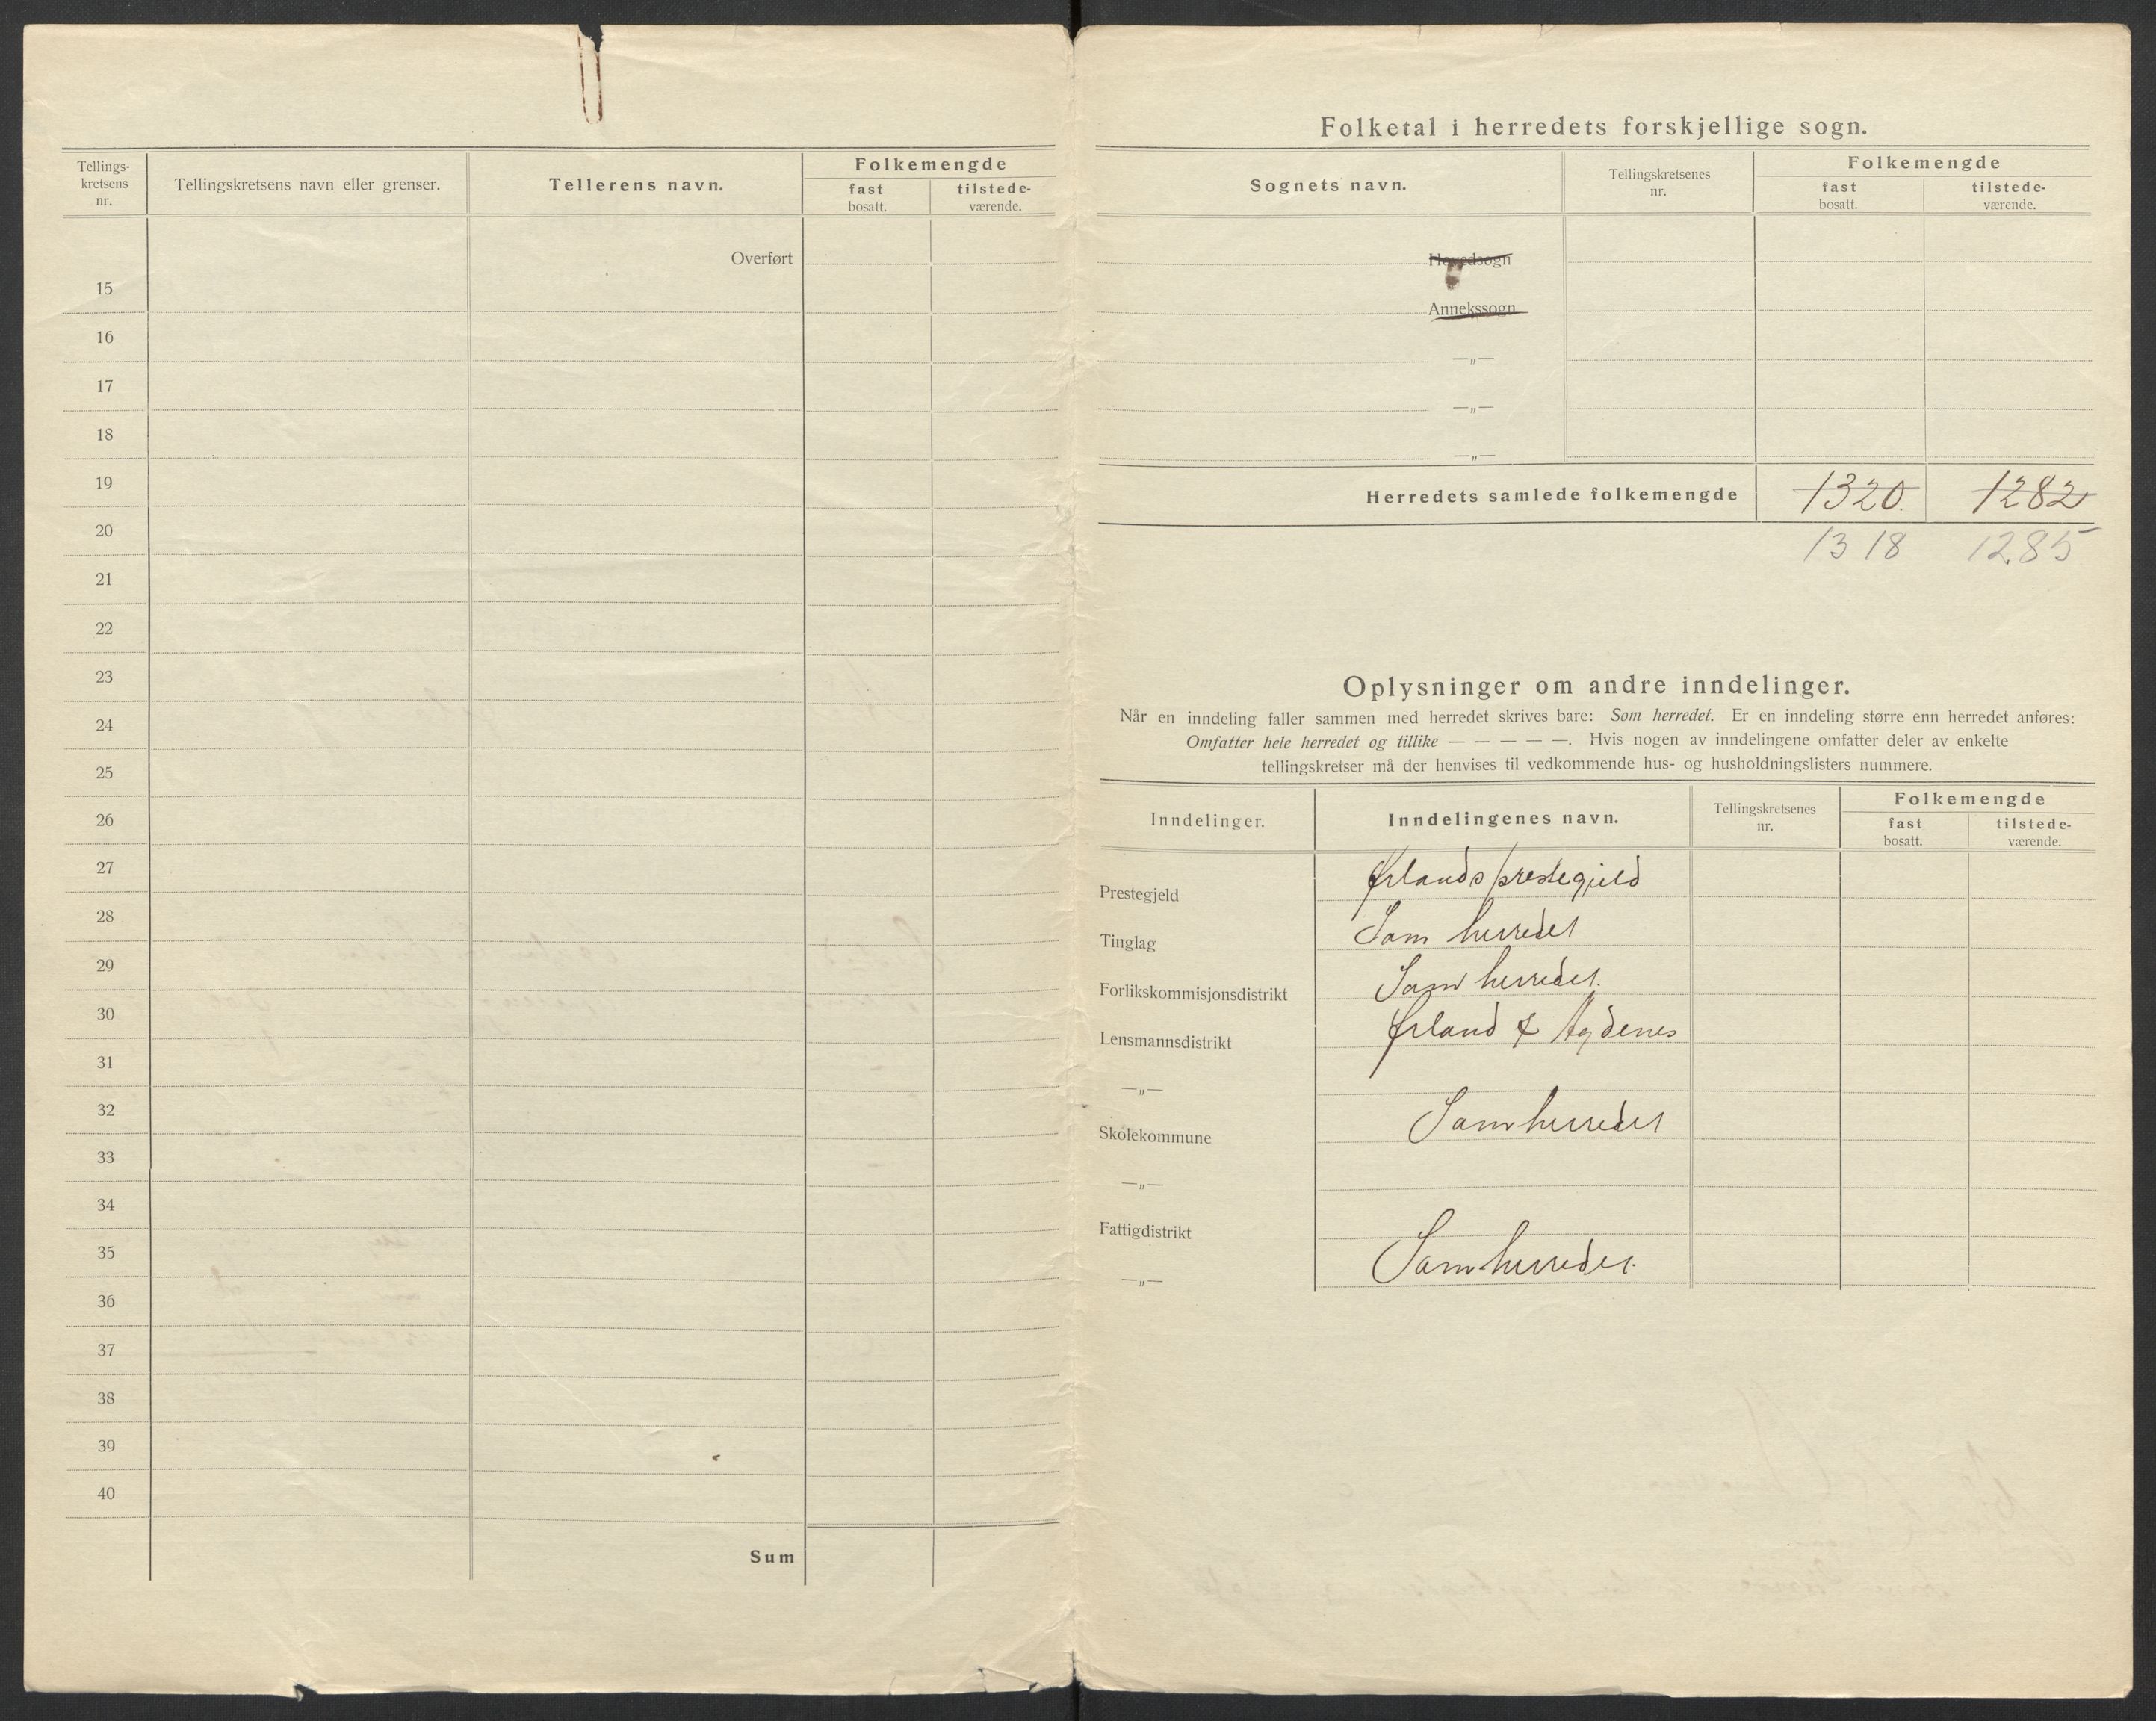 Tellings-
kretsens
nr.
Tellingskretsens navn eller grenser.
Tellerens navn.
Folkemengde
fast
bosatt.
tilstede-
værende.
Overført
15
16
17
18
19
20
21
22
23
24
25
26
27
28
29
30
31
32
33
34
35
36
37
38
39
40
Sum
Folketal i herredets forskjellige sogn.
Sognets navn.
Tellingskretsenes
nr.
Folkemengde
fast
bosatt.
tilstede-
værende.
Hovedsogn
Annekssogn
—„—
—„—
—„—
Herredets samlede folkemengde 1320. 1282
1318 1285
Oplysninger om andre inndelinger.
Når en inndeling faller sammen med herredet skrives bare: Som herredet. Er en inndeling større enn herredet anføres:
Omfatter hele herredet og tillike — — — — —. Hvis nogen av inndelingene omfatter deler av enkelte
tellingskretser må der henvises til vedkommende hus- og husholdningslisters nummere.
Inndelinger.
Inndelingenes navn.
Tellingskretsenes
nr.
Folkemengde
fast
bosatt.
tilstede-
værende.
Prestegjeld Ørlands prestegjeld
Tinglag Som herredet
Forlikskommisjonsdistrikt Som herredet.
Lensmannsdistrikt Ørland & Agdenes
—„—
Skolekommune Som herredet
—„—
Fattigdistrikt
—„— Som herredet.